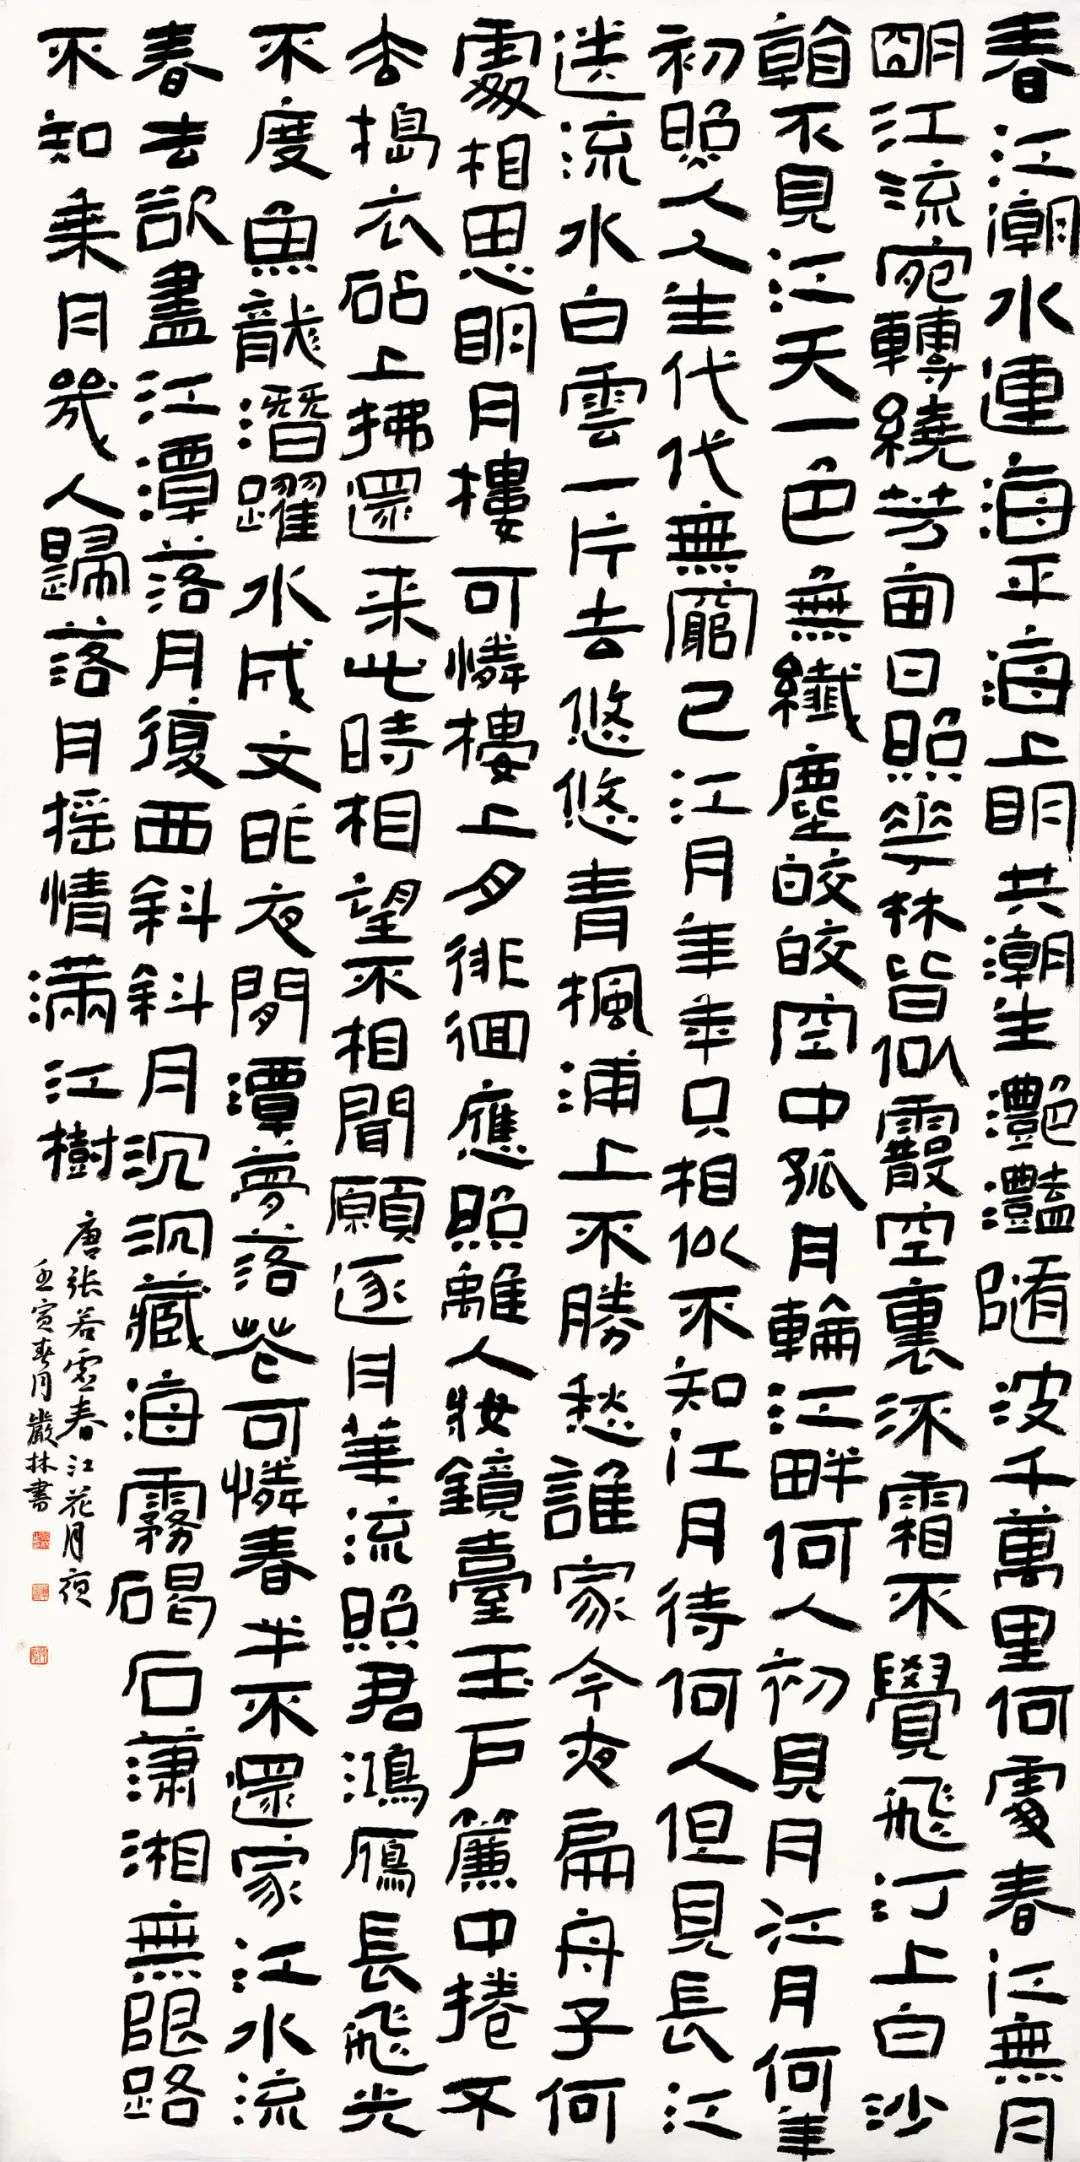 春江潮水連海平海上明共潮生灩灩随波千萬里何處春江無月
明江流宛轉繞芳甸日照花林皆似霰空裏流霜不覺飛汀上白沙
看不見江天一色無纖塵皎皎空中孤月輪江畔何人初見月江月何年
初照人人生代代無窮已江月年年只相似不知江月待何人但見長江
送流水白雲一片去悠悠青楓浦上不勝愁誰家今夜扁舟子何
處相思明月樓可憐樓上月徘徊應照離人妝鏡臺玉戶簾中捲不
去搗衣砧上拂還来此時相望不相聞願逐月華流照君鴻雁長飛光
不度魚龍潛躍水成文昨夜閒潭夢落花可憐春半不還家江水流
春去欲盡江潭落月復西斜斜月沉沉藏海霧碣石瀟湘無限路
不知乘月幾人歸落月摇情滿江樹
唐張若虛春江花月夜
壬寅春月嚴林書